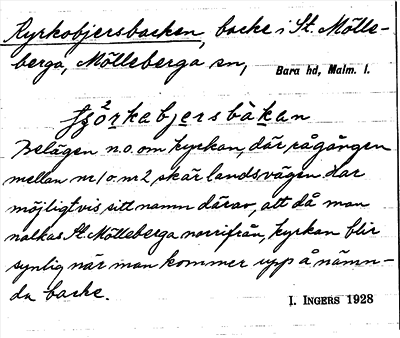 Kyrkobjersbacken, backe i St. Mölle-
berga, Mölleberga sn,
Bara hd, Malm. l.
Belägen n.o. om kyrkan, där rågången
mellan nr 1 o. nr 2 skär landsvägen. Har
möjligtvis sitt namn därav, att då man
nalkas St. Mölleberga norrifrån, kyrkan blir
synlig när man kommer upp å nämn-
da backe.
I. INGERS 1928